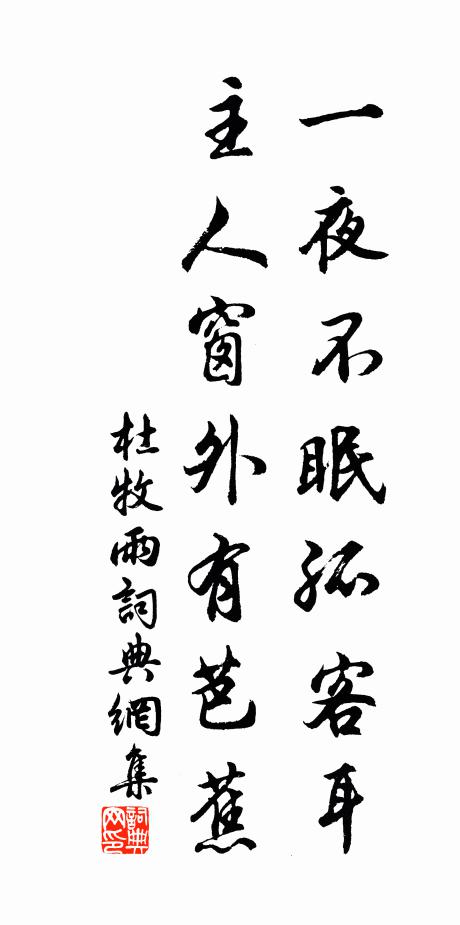 一夜不眠孤客耳
主人窗外有芭蕉
杜牧雨詞典網集
詞典網印